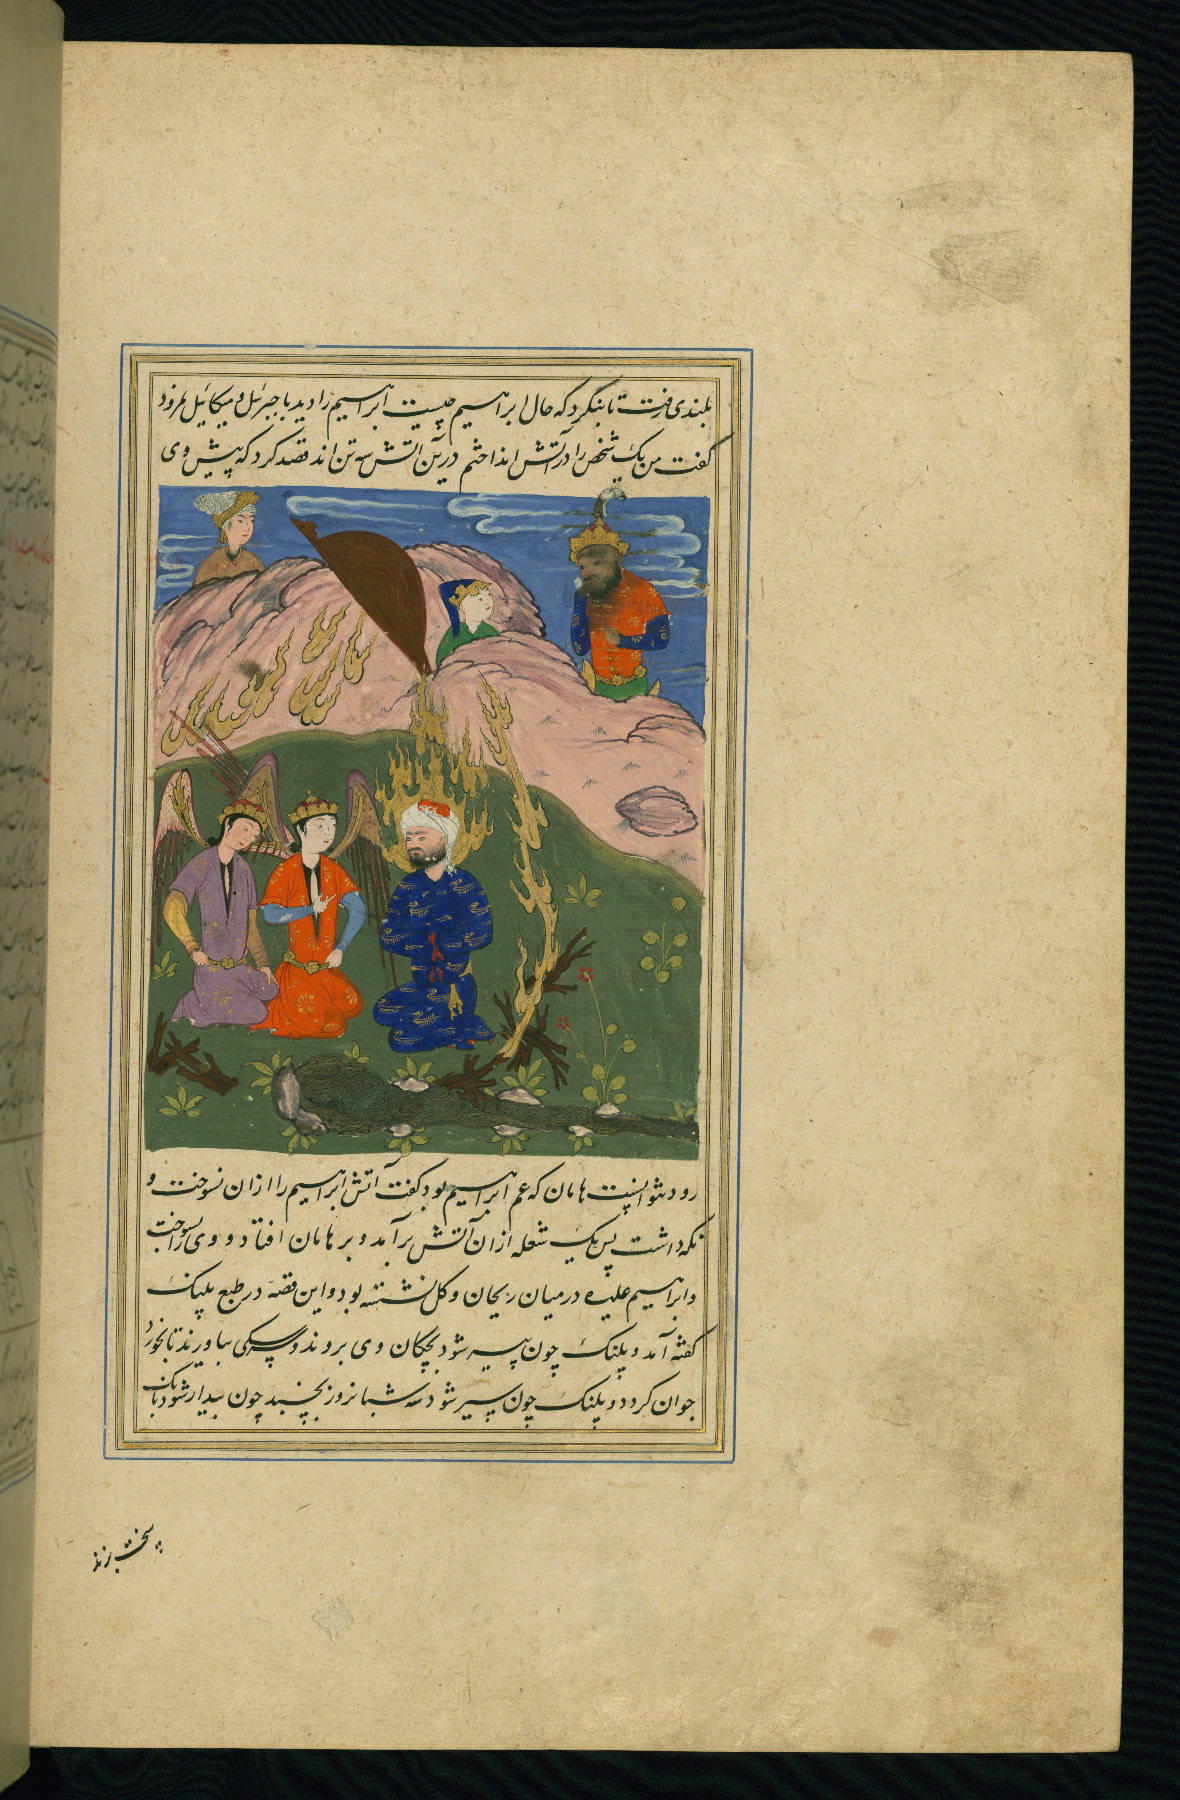 بلندی رفت تا بنگرد که حال ابراهیم چیست ابراهیم را دید با جبرئیل و میکائیل نمرود
گفت من یک شخص را در آتش انداختم درین آتش سه تن اند قصد کرد که پیش وی
رود نتوانست هامان که عم ابراهیم بود گفت آتش ابراهیم را از ان نسوخت و
نکه داشت پس یک شعله از ان آتش برآمد و بر هامان افتاد و وی را بسوخت
و ابراهیم علیه در میان ریحان و کل نشسته بود و این قصه در طبع پلنک
کفته آمد و پلنک چون پیر شود بچکان وی بروند و بیاورند تا بخورد
جوان کردد و پلنک چون سیر شود سه شبانروز بخسبد چون بیدار شود بانک
سخت بزند